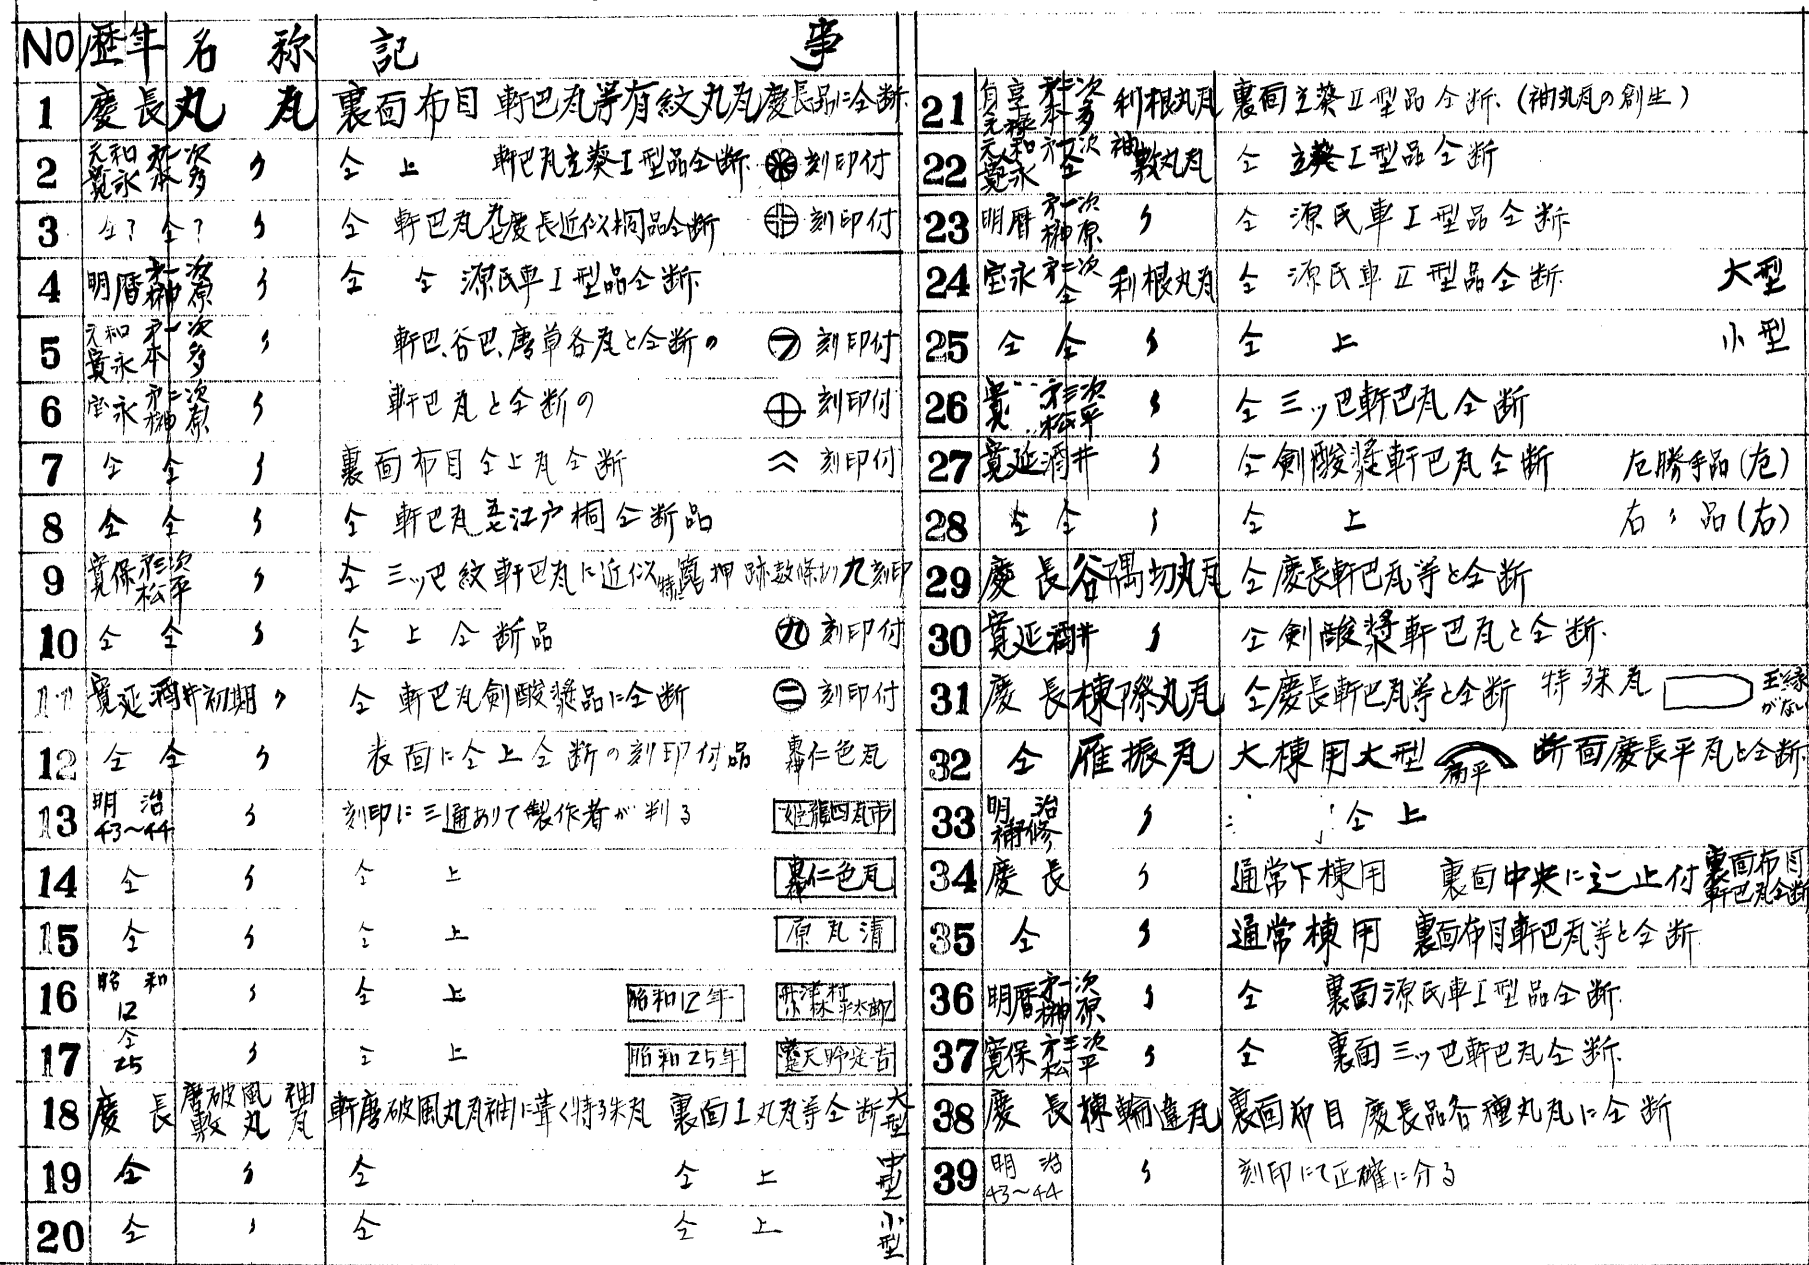 NO 歴年 名称 記事
1 慶長 丸瓦 裏面布目 軒巴瓦等有紋丸瓦慶長品に仝断.
2 元和寛永 才一次本多 〃 仝上 軒巴瓦立葵I型品仝断. 刻印付
3 仝? 仝? 〃 仝 軒巴瓦 慶長近似桐品仝断 刻印付
4 明暦 才一次榊原 〃 仝 仝 源氏車I型品仝断.
5 元和寛永 才一次本多 〃 軒巴、谷巴、唐草各瓦と仝断の 刻印付
6 宝永 才二次榊原 〃 軒巴瓦と仝断の 刻印付
7 仝 仝 〃 裏面布目仝上瓦仝断 刻印付
8 仝 仝 〃 仝 軒巴瓦 江戸桐仝断品
9 寛保 才三次松平 〃 仝 三ッ巴紋軒巴瓦に近似 特に 押跡数条 九刻印
10 仝 仝 〃 仝上仝断品 九 刻印付
11 寛延 酒井初期 〃 仝 軒巴瓦剣酸漿品に仝断 二 刻印付
12 仝 仝 〃 表面に仝上仝断の刻印付品 仁色瓦
13 明治43~44 〃 刻印に三通ありて製作者が判る 姫 四瓦市
14 仝 〃 仝上 仁色瓦
15 仝 〃 仝上 原瓦清
16 昭和12 〃 仝上 昭和12年
17 仝25 〃 仝上 昭和25年
18 慶長 唐破風袖敷丸瓦 軒唐破風丸瓦袖に葺く特殊瓦 裏面I丸瓦等仝断 大型
19 仝 〃 仝 仝上 中型
20 仝 〃 仝 仝上 小型
21 貞享元禄 才二次本多 利根丸瓦 裏面立葵II型品仝断、(袖丸瓦の創生)
22 元和寛永 才一次仝 袖敷丸瓦 仝 立葵I型品仝断
23 明暦 才一次榊原 〃 仝 源氏車I型品仝断
24 宝永 才二次仝 利根丸瓦 仝 源氏車II型品仝断 大型
25 仝 仝 〃 仝上 小型
26 寛 才三次松平 〃 仝三ッ巴軒巴瓦仝断
27 寛延 酒井 〃 仝剣酸漿軒巴瓦仝断 左勝手品(左)
28 仝 仝 〃 仝上 右〃品(右)
29 慶長 谷隅切丸瓦 仝慶長軒巴瓦等と仝断
30 寛延 酒井 〃 仝剣酸漿軒巴瓦と仝断.
31 慶長 棟際丸瓦 仝慶長軒巴瓦等と仝断 特殊瓦 玉縁がない
32 仝 雁振瓦 大棟用大型 扁平 断面慶長平瓦と仝断.
33 明治補修 〃 仝上
34 慶長 〃 通常下棟用 裏面中央に 止付 裏面布目軒巴瓦仝断
35 仝 〃 通常棟用 裏面布目軒巴瓦等と仝断
36 明暦 才一次榊原 〃 仝 裏面源氏車I型品仝断.
37 寛保 才三次松平 〃 仝 裏面三ッ巴軒巴瓦仝断.
38 慶長 棟輪違瓦 裏面布目 慶長品各種丸瓦に仝断
39 明治43~44 〃 刻印にて正確に分る